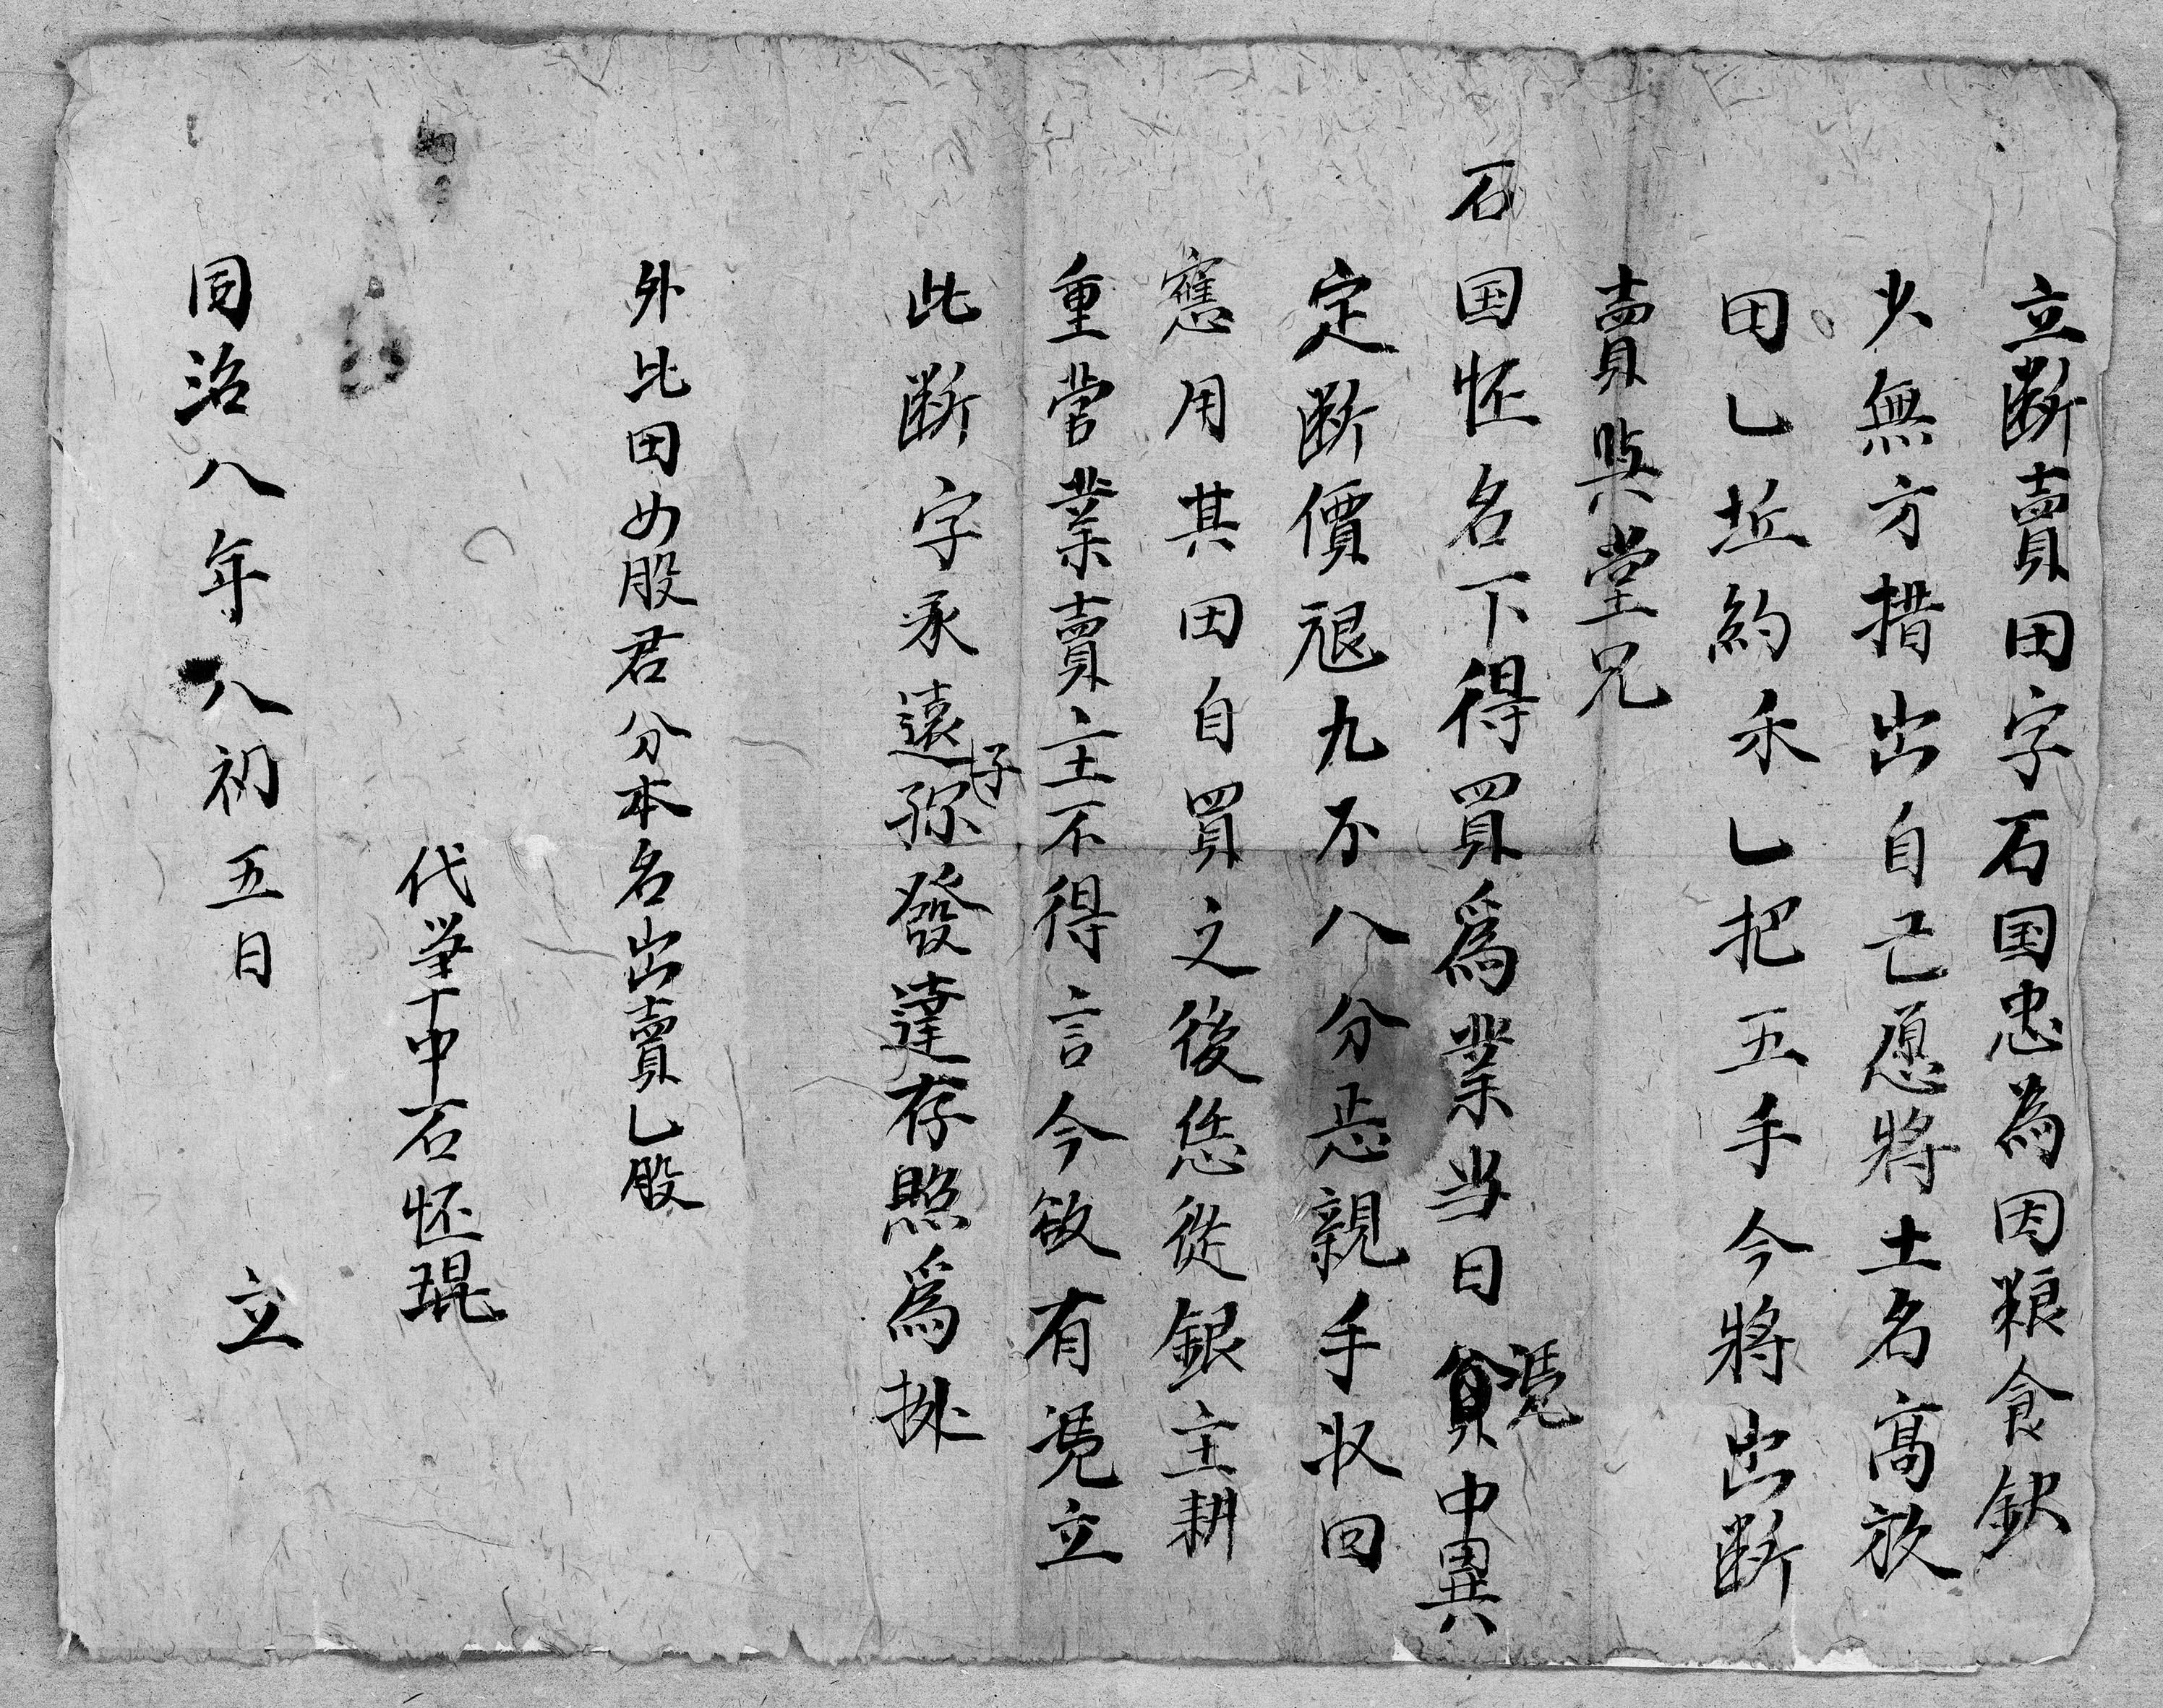 立断賣田字石国忠為因粮食缺
少無方措出自己愿將土名高放
田乚坵約禾乚把五手今將出断
賣與堂兄
石国怀名下得買爲業当日憑中異
定断價艰九不八分忢親手收回
應用其田自買之後恁從銀主耕
重营業賣主不得言今欲有凴立
此断字承遠孫子發達存照爲挀
外比田如股君分本名出賣乚股
代筆中石怀琨
同治八年八初五日 立